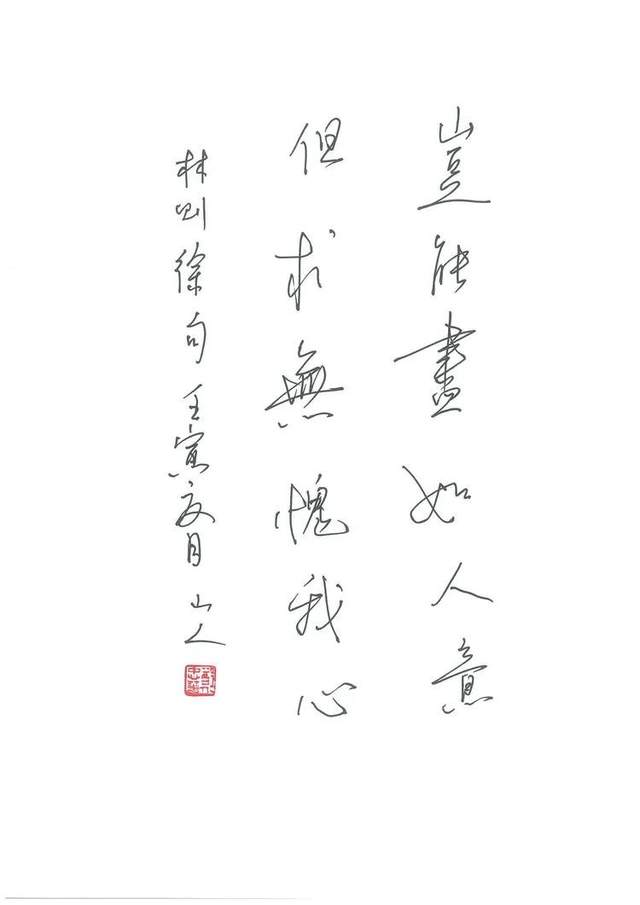 豈能盡如人意
但求無愧我心
林则徐句 壬寅夏月 山人